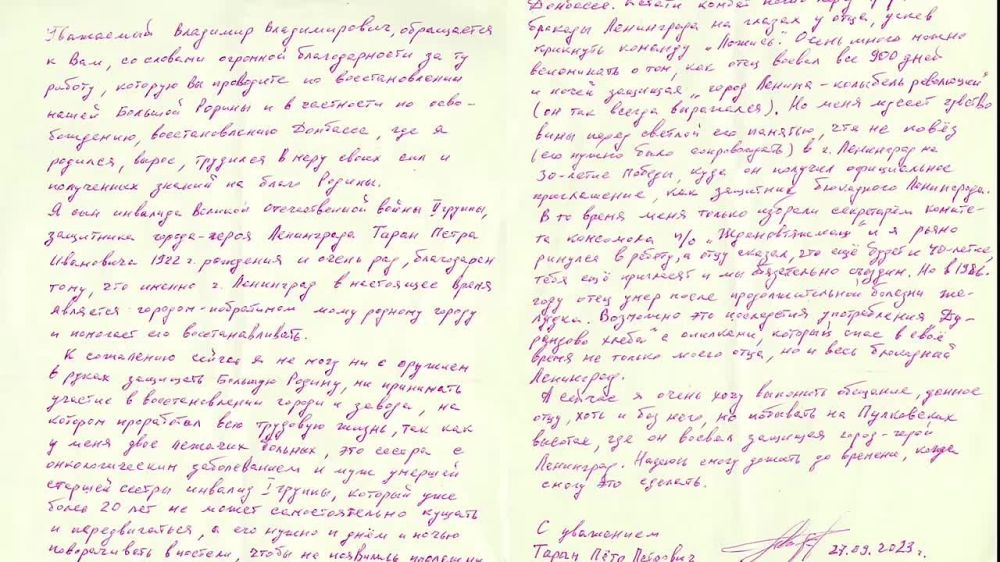 Уважаемый Владимир Владимирович, обращается
к Вам, со словами огромной благодарности за ту
работу, которую Вы проводите по восстановлению
нашей Большой Родины и в частности по осво-
бождению, восстановлению Донбасса, где я
родился, вырос, трудился в меру своих сил и
полученных знаний на благо Родины.
Я сын инвалида Великой Отечественной войны II группы,
защитника города-героя Ленинграда Таран Петра
Ивановича 1922 г. рождения и очень рад, благодарен
тому, что именно г. Ленинград в настоящее время
является городом-побратимом моему родному городу
и помогает его восстанавливать.
К сожалению сейчас я не могу ни с оружием
в руках защищать Большую Родину, ни принимать
участие в восстановлении города и завода, на
котором проработал всю трудовую жизнь, так как
у меня двое лежачих больных, это сестра с
онкологическим заболеванием и муж умершей
старшей сестры инвалид I группы, который уже
более 20 лет не может самостоятельно кушать
и передвигаться, а его нужно и днём и ночью
поворачивать в постели, чтобы не появились пролежни
Донбассе. Кстати комбат погиб
блокады Ленинграда на глазах у отца, успев
крикнуть команду „Ложись". Очень много можно
вспоминать о том, как отец воевал все 900 дней
и ночей защищая „город Ленина - колыбель революции"
(он так всегда выражался). Но меня мучает чувство
вины перед светлой его памятью, что не повёз
(его нужно было сопровождать) в г. Ленинград на
30-летие Победы, куда он получил официальное
приглашение, как защитник блокадного Ленинграда.
В то время меня только избрали секретарём комите-
та комсомола п/о „Ждановтяжмаш" и я рьяно
ринулся в работу, а отцу сказал, что ещё будет и 40-летие,
тебя ещё пригласят и мы обязательно съездим. Но в 1986
году отец умер после продолжительной болезни же-
лудка. Возможно это последствия употребления „Ду-
рандово хлеба" с опилками, который спас в своё
время не только моего отца, но и весь блокадный
Ленинград.
А сейчас я очень хочу выполнить обещание, данное
отцу, хоть и без него, но побывать на Пулковских
высотах, где он воевал защищая город-герой
Ленинград. Надеюсь смогу дожить до времени, когда
смогу это сделать.
С уважением
Таран Пётр Петрович 27.09.2023 г.